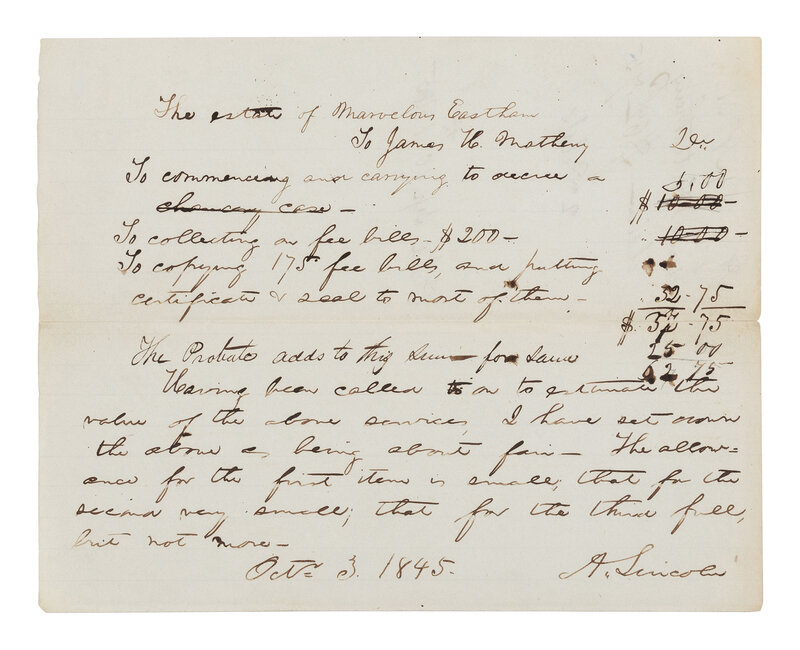 The estate of Marvelous Eastham
To James H. Matheny Dr.
To commencing and carrying to decree a 5.00
chancery case - $10-00-
To collecting on fee bills - $200- 10-00-
To copying 175 fee bills, and putting
certificate & seal to most of them - 32-75
$ 37-75
The Probate adds to this sum for same 25 00
62 75
Having been called to on to estimate the
value of the above services I have set down
the above as being about fair - The allow-
ance for the first item is small; that for the
second very small; that for the third full,
but not more -
Octr 3. 1845. A. Lincoln